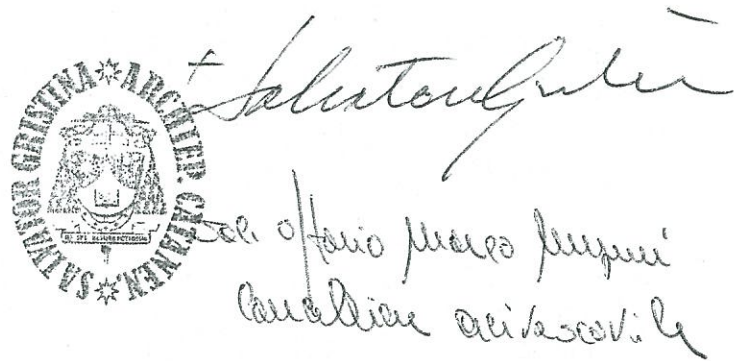 SALVATOR GRISTINA ARCHIEP. CATANEN.
+ Salvatore Gristina
Sac. Ottavio Marco Musumeci
Cancelliere Arcivescovile